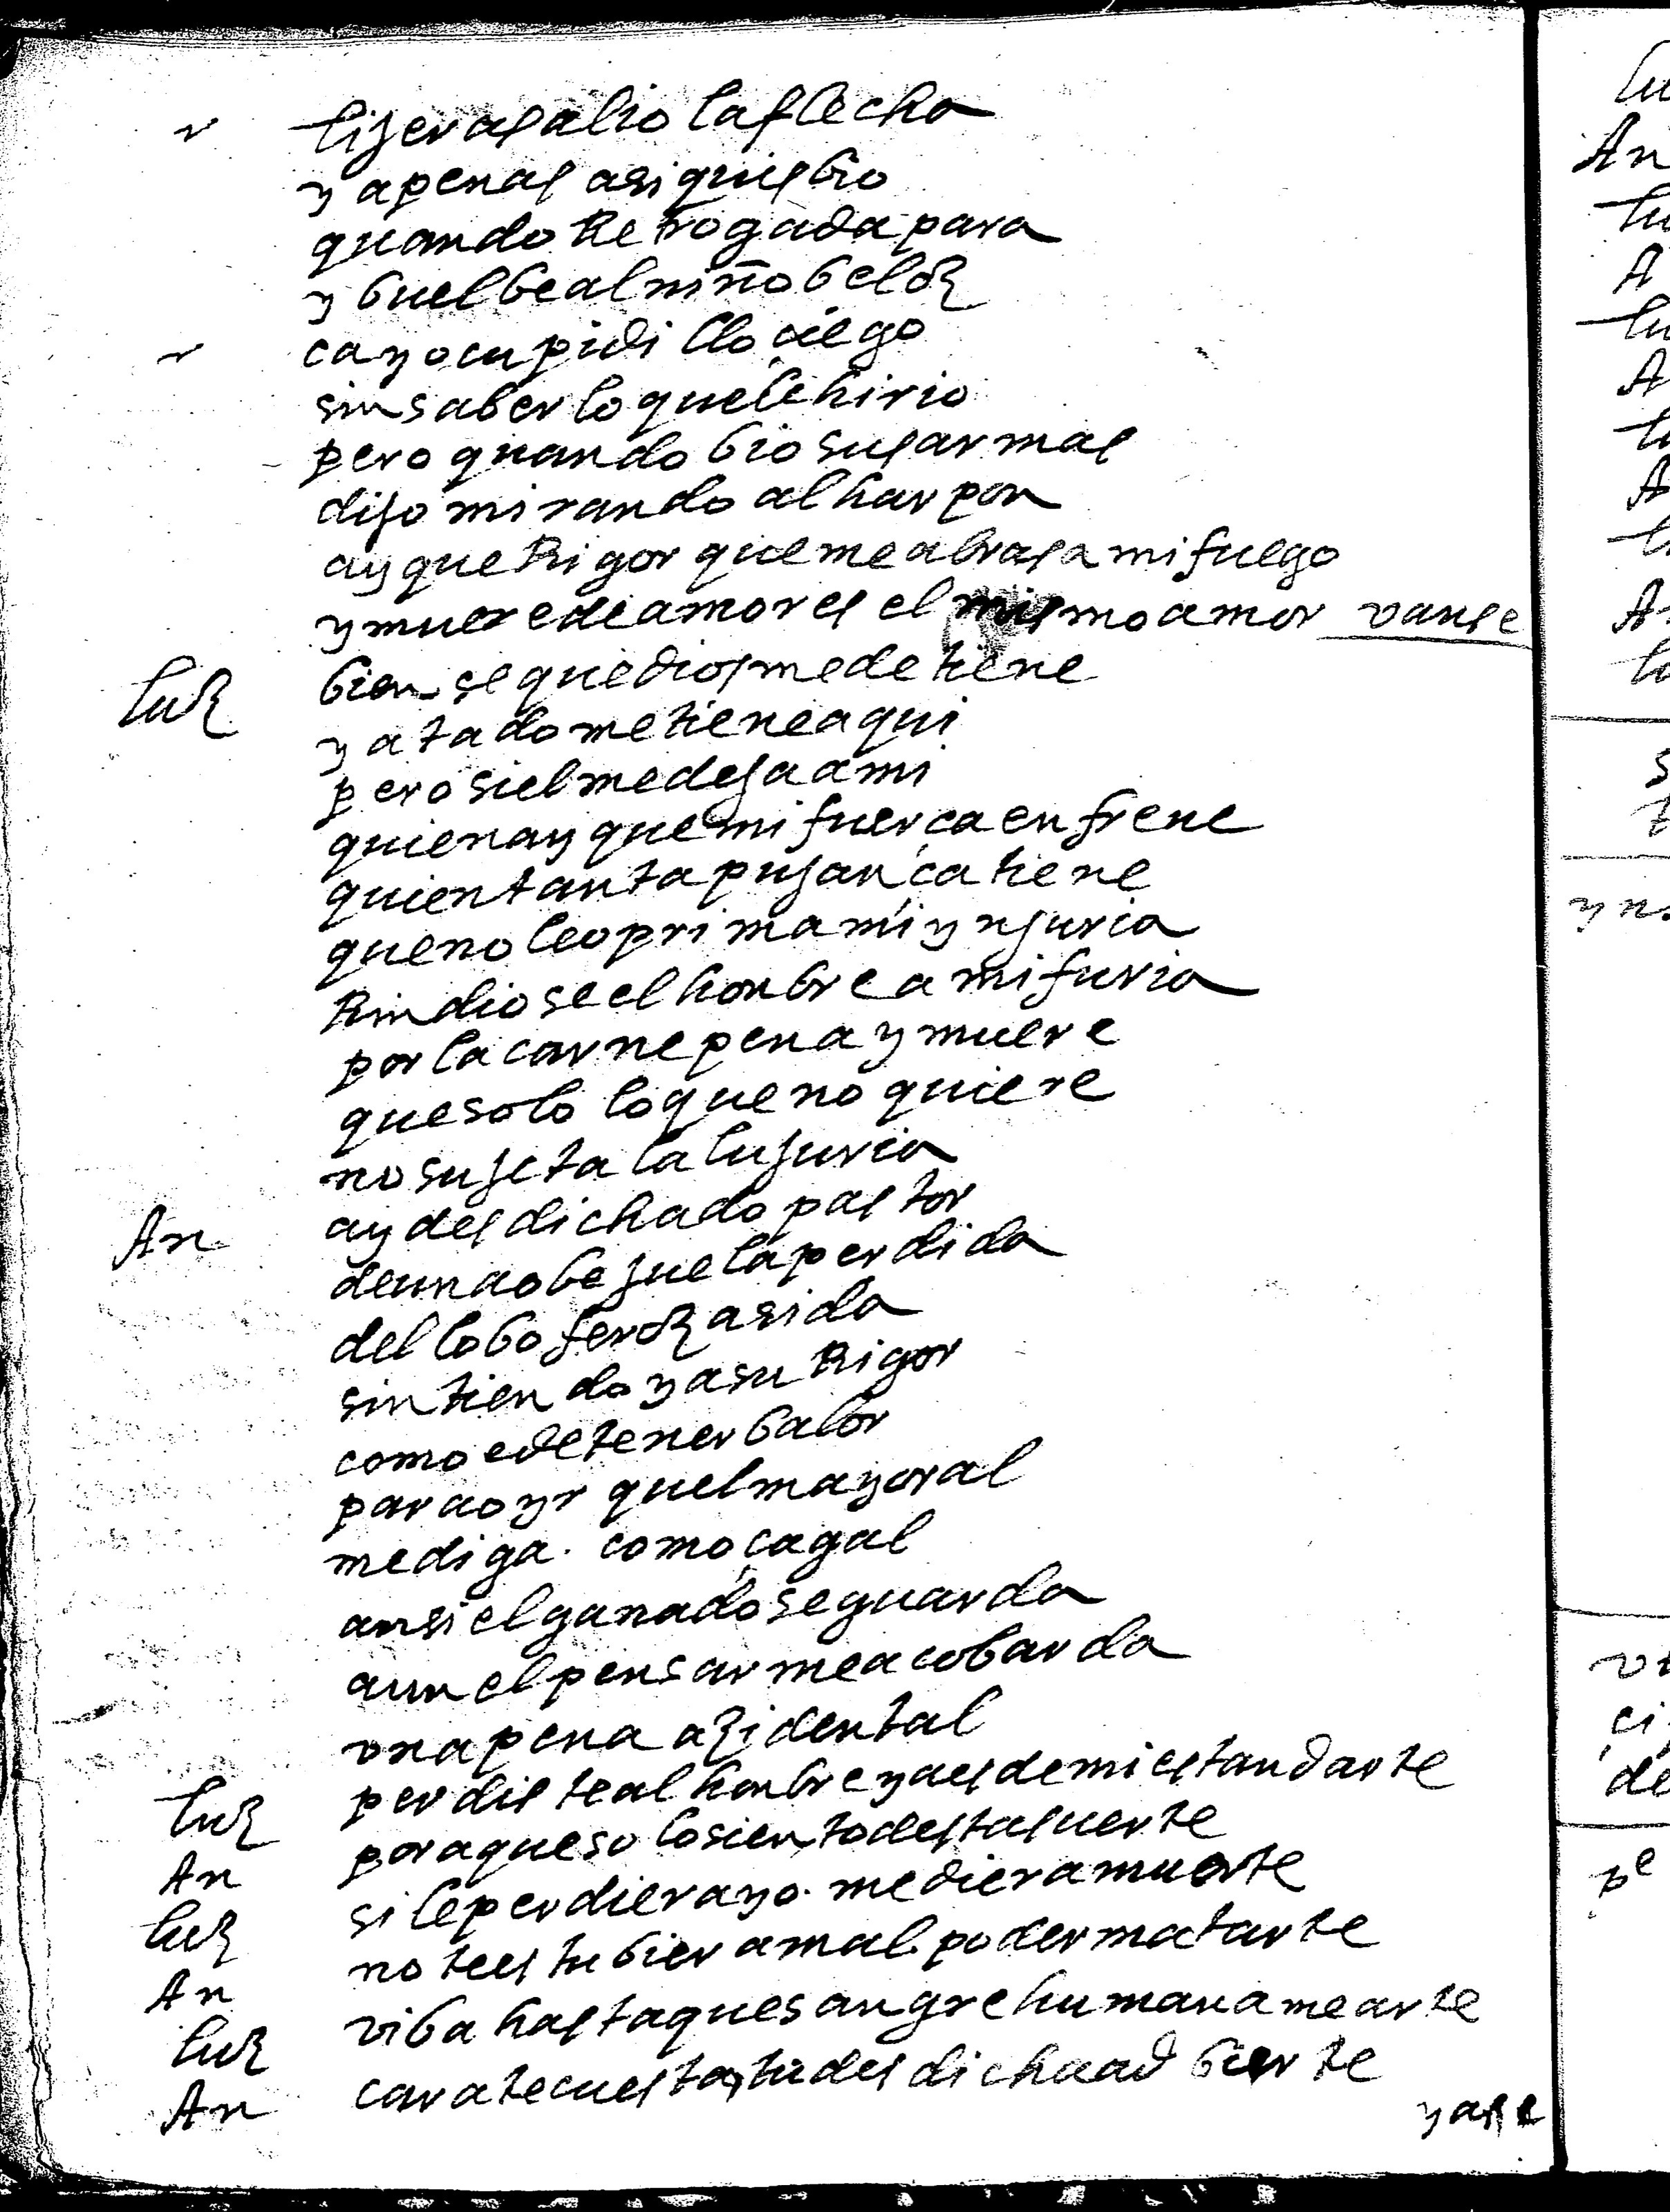 lijera salio la flecha
y apenas asi quis bio
quando Retrogada para
y buelbe al niño beloz
cayo cupidillo ciego
sin saber lo que le hirio
pero quando bio sus armas
dijo mirando al harpon
ay que Rigor que me abrasa mi fuego
y muere de amores el mismo amor vanse
luz bien se que dios me detiene
y atado me tiene aqui
pero si el me deja a mi
quien ay que mi fuerça enfrene
quien tanta pujança tiene
que no le oprima mi ynjuria
Rindiose el honbre a mi furia
por la carne pena y muere
que solo lo que no quiere
no sujeta la lujuria
An ay desdichado pastor
de una obejuela perdida
del lobo feroz asida
sintiendo ya su Rigor
como e de tener balor
para oyr quel mayoral
me diga. como çagal
ansi el ganado se guarda
aun el pensar me acobarda
vna pena azidental
luz perdiste al honbre y a es de mi estandarte
An por aqueso lo siento desta suerte
luz si le perdiera yo. me diera muerte
An no te estubiera mal poder matarte
luz viba hasta que sangre humana me arte
An cara te cuesta, tu desdicha adbierte
yase